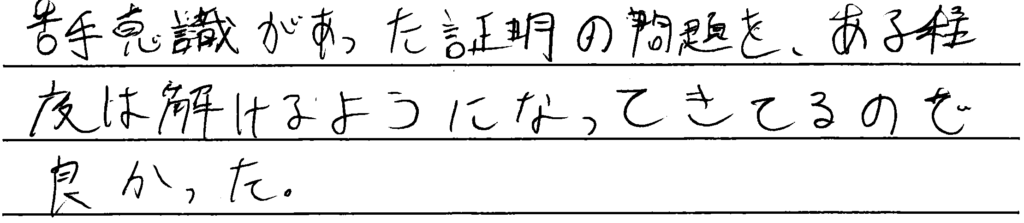 苦手意識があった証明の問題を、ある程
度は解けるようになってきてるので
良かった。